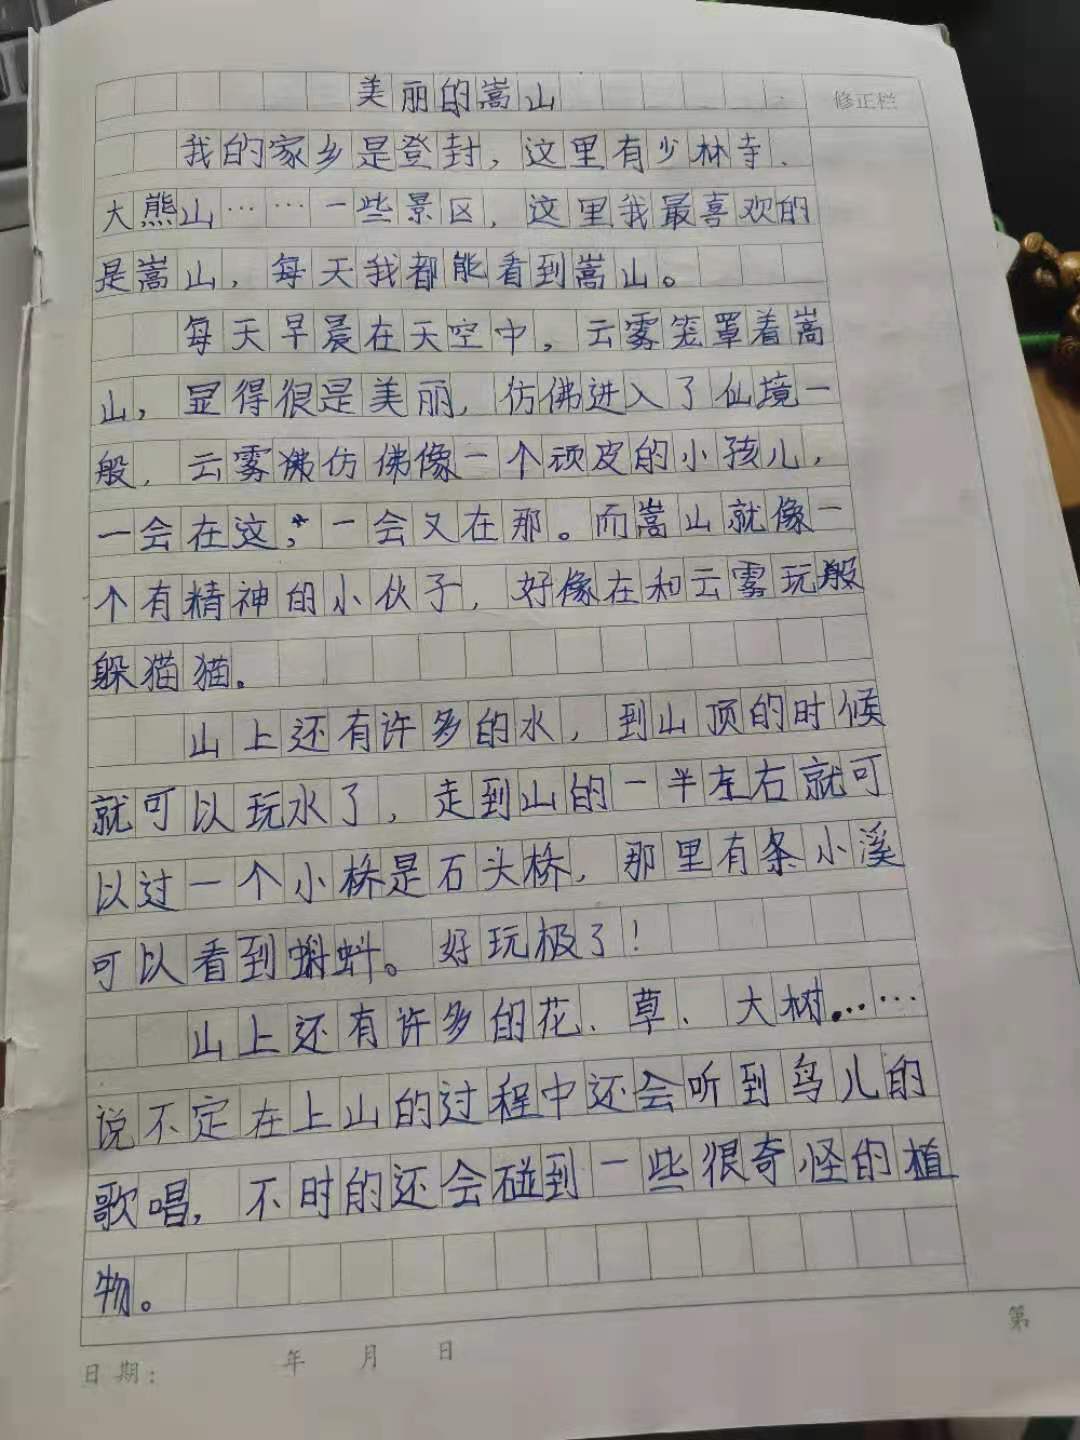 美丽的嵩山
修正栏
我的家乡是登封，这里有少林寺、
大熊山……一些景区，这里我最喜欢的
是嵩山，每天我都能看到嵩山。
每天早晨在天空中，云雾笼罩着嵩
山，显得很是美丽，仿佛进入了仙境一
般，云雾仿佛像一个顽皮的小孩儿，
一会在这，一会又在那。而嵩山就像一
个有精神的小伙子，好像在和云雾玩
躲猫猫。
山上还有许多的水，到山顶的时候
就可以玩水了，走到山的一半左右就可
以过一个小桥是石头桥，那里有条小溪
可以看到蝌蚪。好玩极了！
山上还有许多的花、草、大树……
说不定在上山的过程中还会听到鸟儿的
歌唱，不时的还会碰到一些很奇怪的植
物。
日期： 年 月 日
第